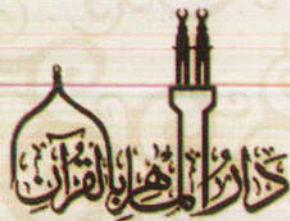 دَارُ المَاهِرِ بِالقُرْآنِ